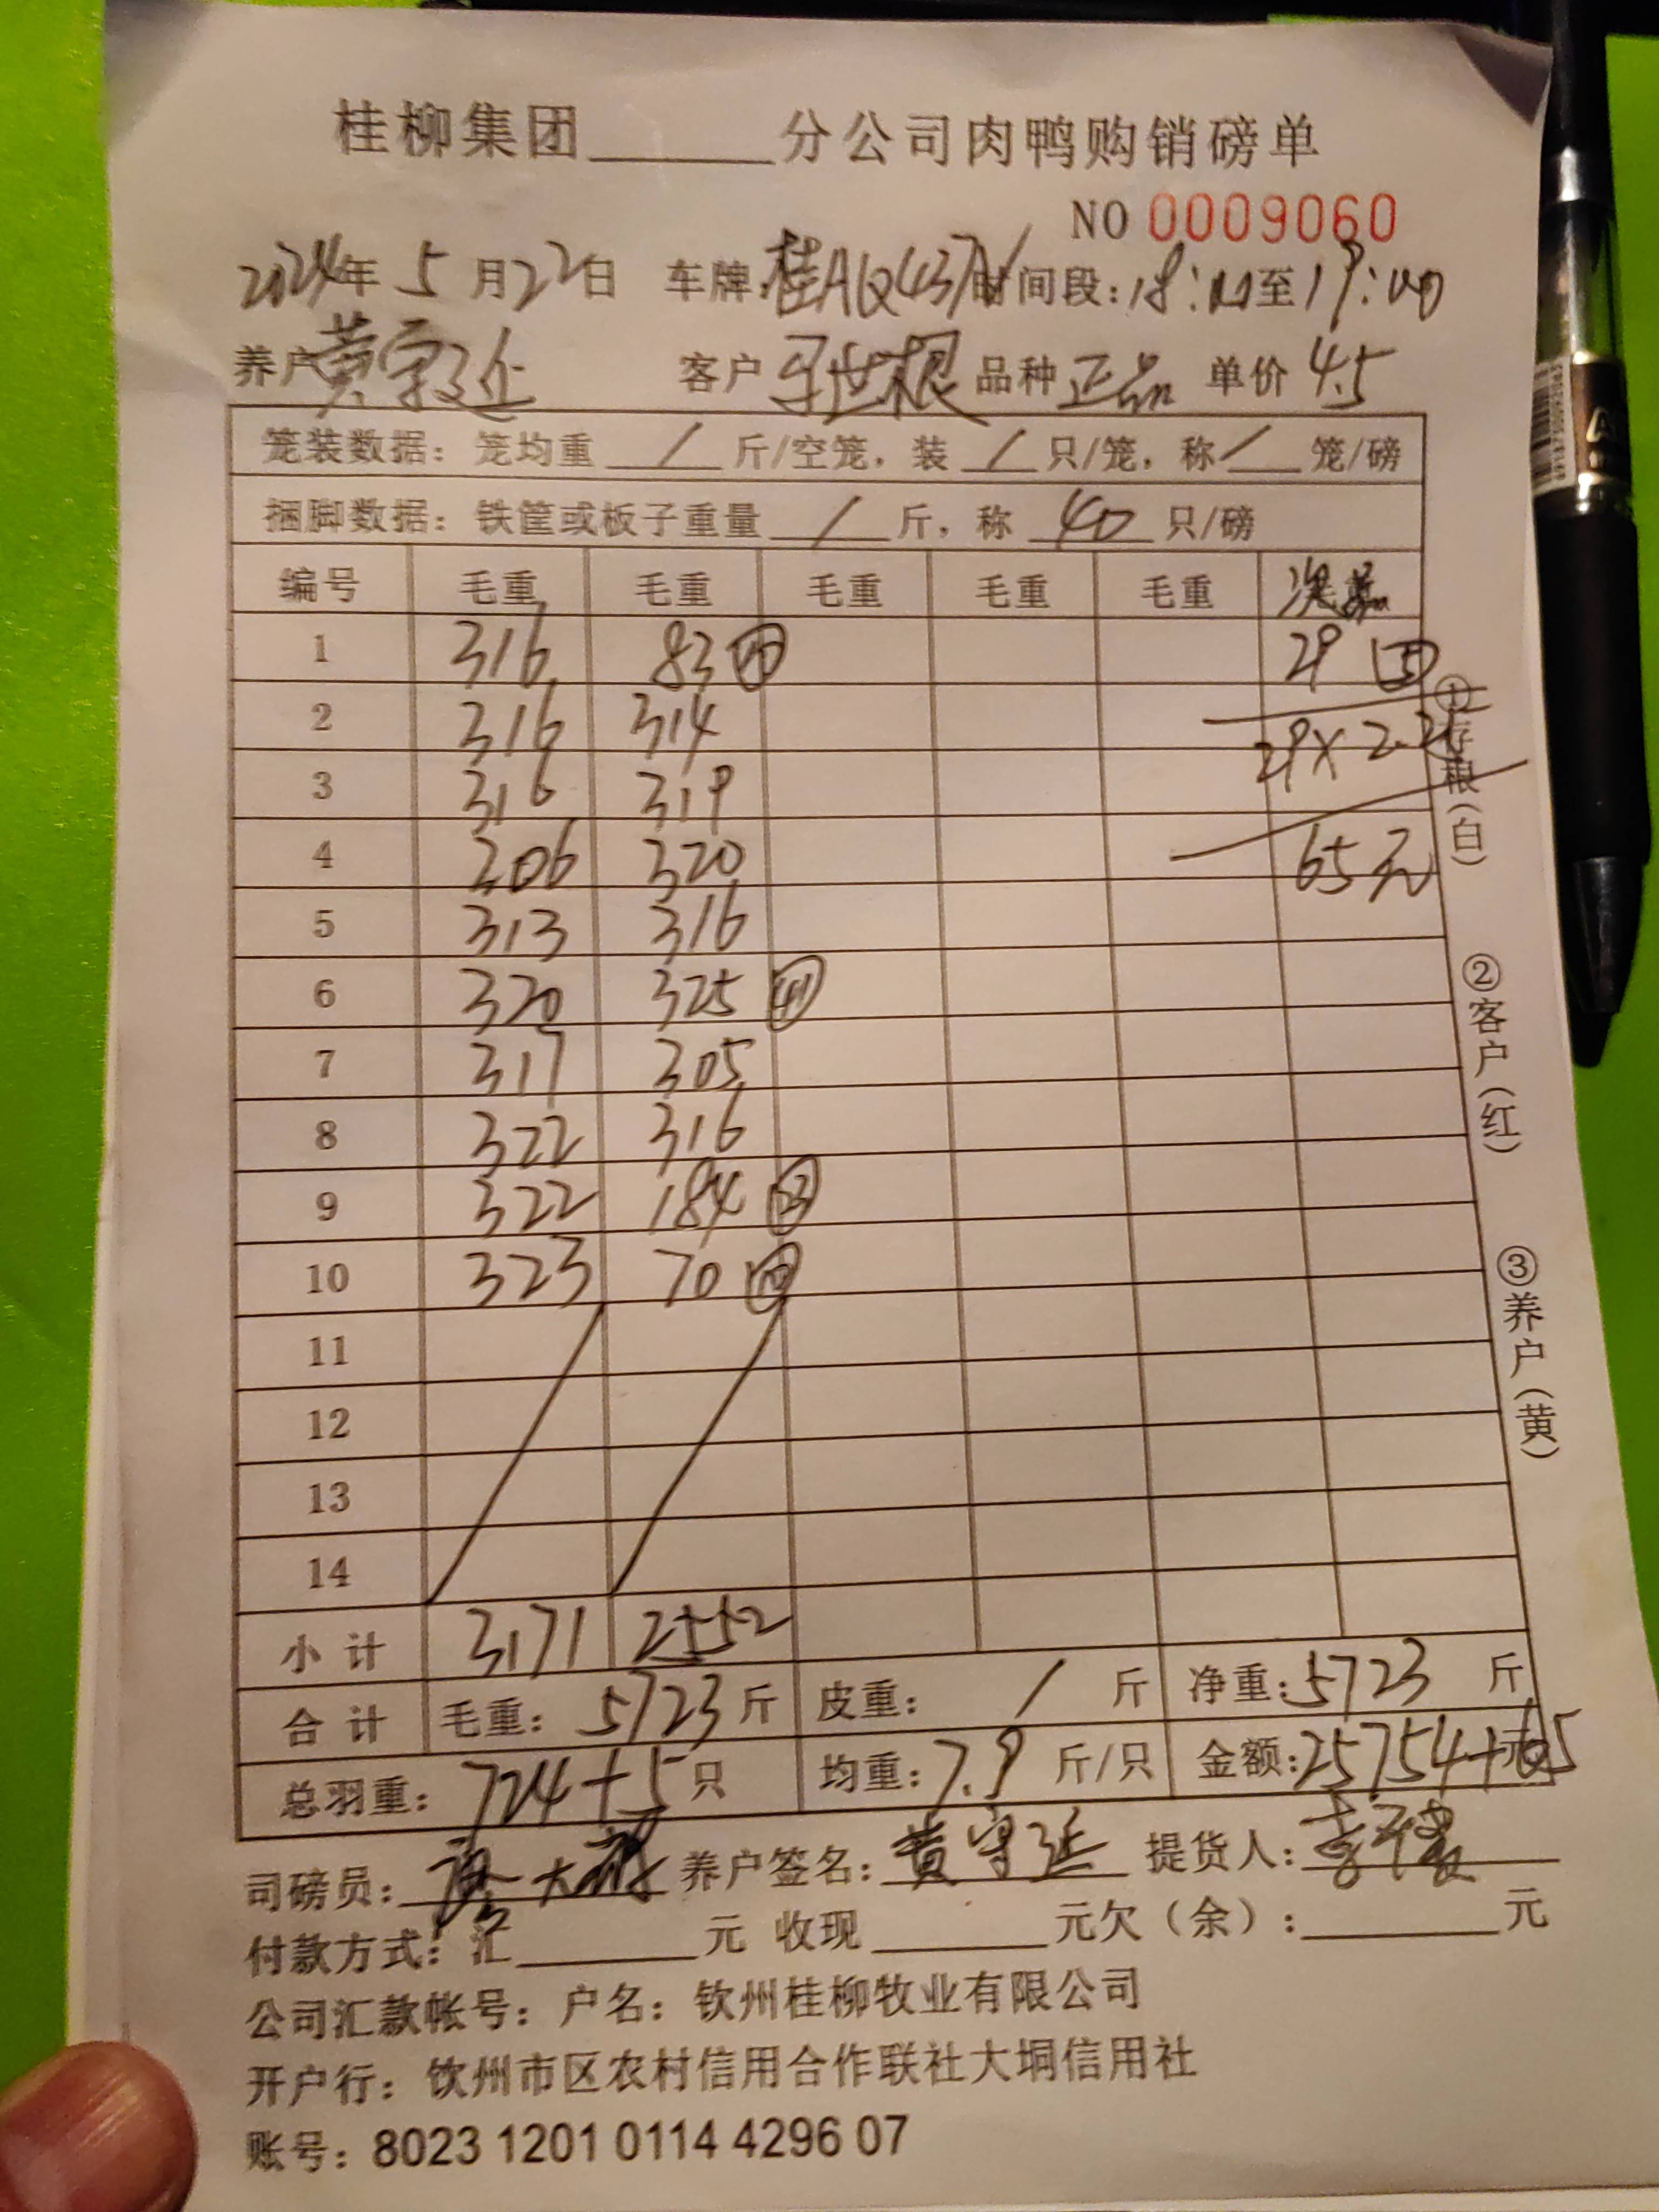 桂柳集团______分公司肉鸭购销磅单
NO 0009060
2024年 5 月22日 车牌:桂AQ437 时间段:18:00至19:00
养户 黄守延 客户 世根 品种 正品 单价 4.5
笼装数据: 笼均重 / 斤/空笼, 装 / 只/笼, 称 / 笼/磅
捆脚数据: 铁筐或板子重量 / 斤, 称 40 只/磅
编号 毛重 毛重 毛重 毛重 毛重 次品
1 316 83 29 ⑤
2 316 314 29×2.25
3 316 319
4 306 320 65元
5 313 316
6 320 325 ㊶
7 317 305
8 322 316
9 322 184 ㉓
10 323 70 ⑩
11
12
13
14
小计 3171 2552
合计 毛重: 5723斤 皮重: / 斤 净重:5723 斤
总羽重: 724+5只 均重:7.9 斤/只 金额:25754+65元
司磅员: 养户签名:黄守延 提货人:
付款方式: 汇______元 收现______元欠(余):______元
公司汇款帐号: 户名: 钦州桂柳牧业有限公司
开户行: 钦州市区农村信用合作联社大垌信用社
账号: 8023 1201 0114 4296 07
①存根(白)
②客户(红)
③养户(黄)